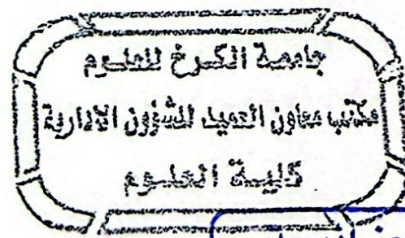 جامعة الكرخ للعلوم
مكتب معاون العميد للشؤون الادارية
كلية العلوم